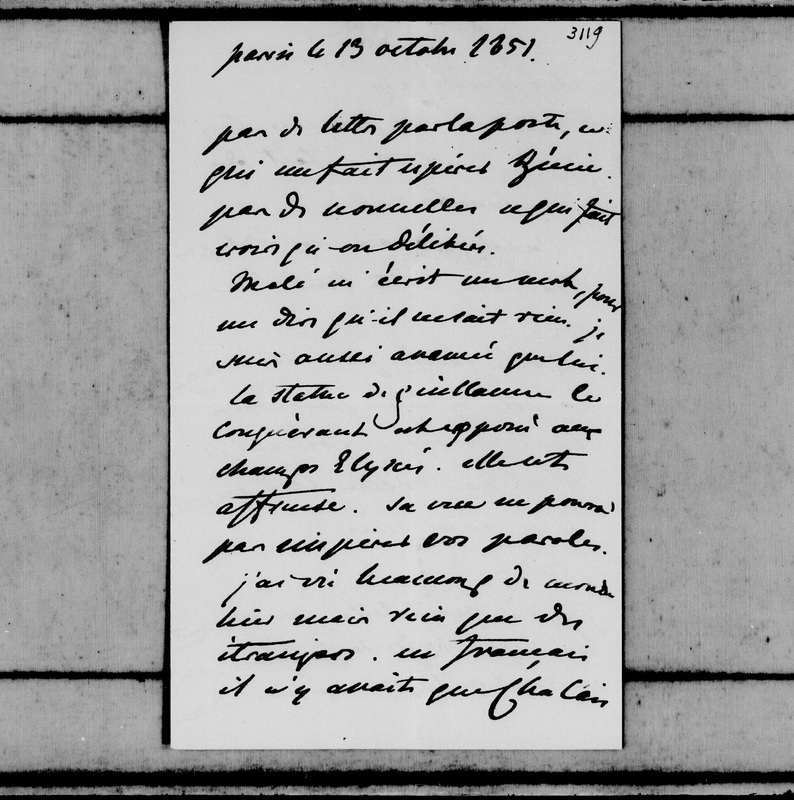 3119
paris le 13 octobre 1851.
pas de lettre par la poste, ce
qui me fait espérer
pas de nouvelles ce qui fait
croire qu'on délibère.
Molé m'écrit un mot, pour
me dire qu'il ne sait rien. je
suis aussi avancée que lui.
la statue de guillaume le
Conquérant est exposée aux
champs Elysées. elle est
affreuse. sa vue ne pourra
pas inspirer vos paroles.
j'ai vu beaucoup de monde
hier mais rien que des
étrangers. en français
il n'y avait que Chalais